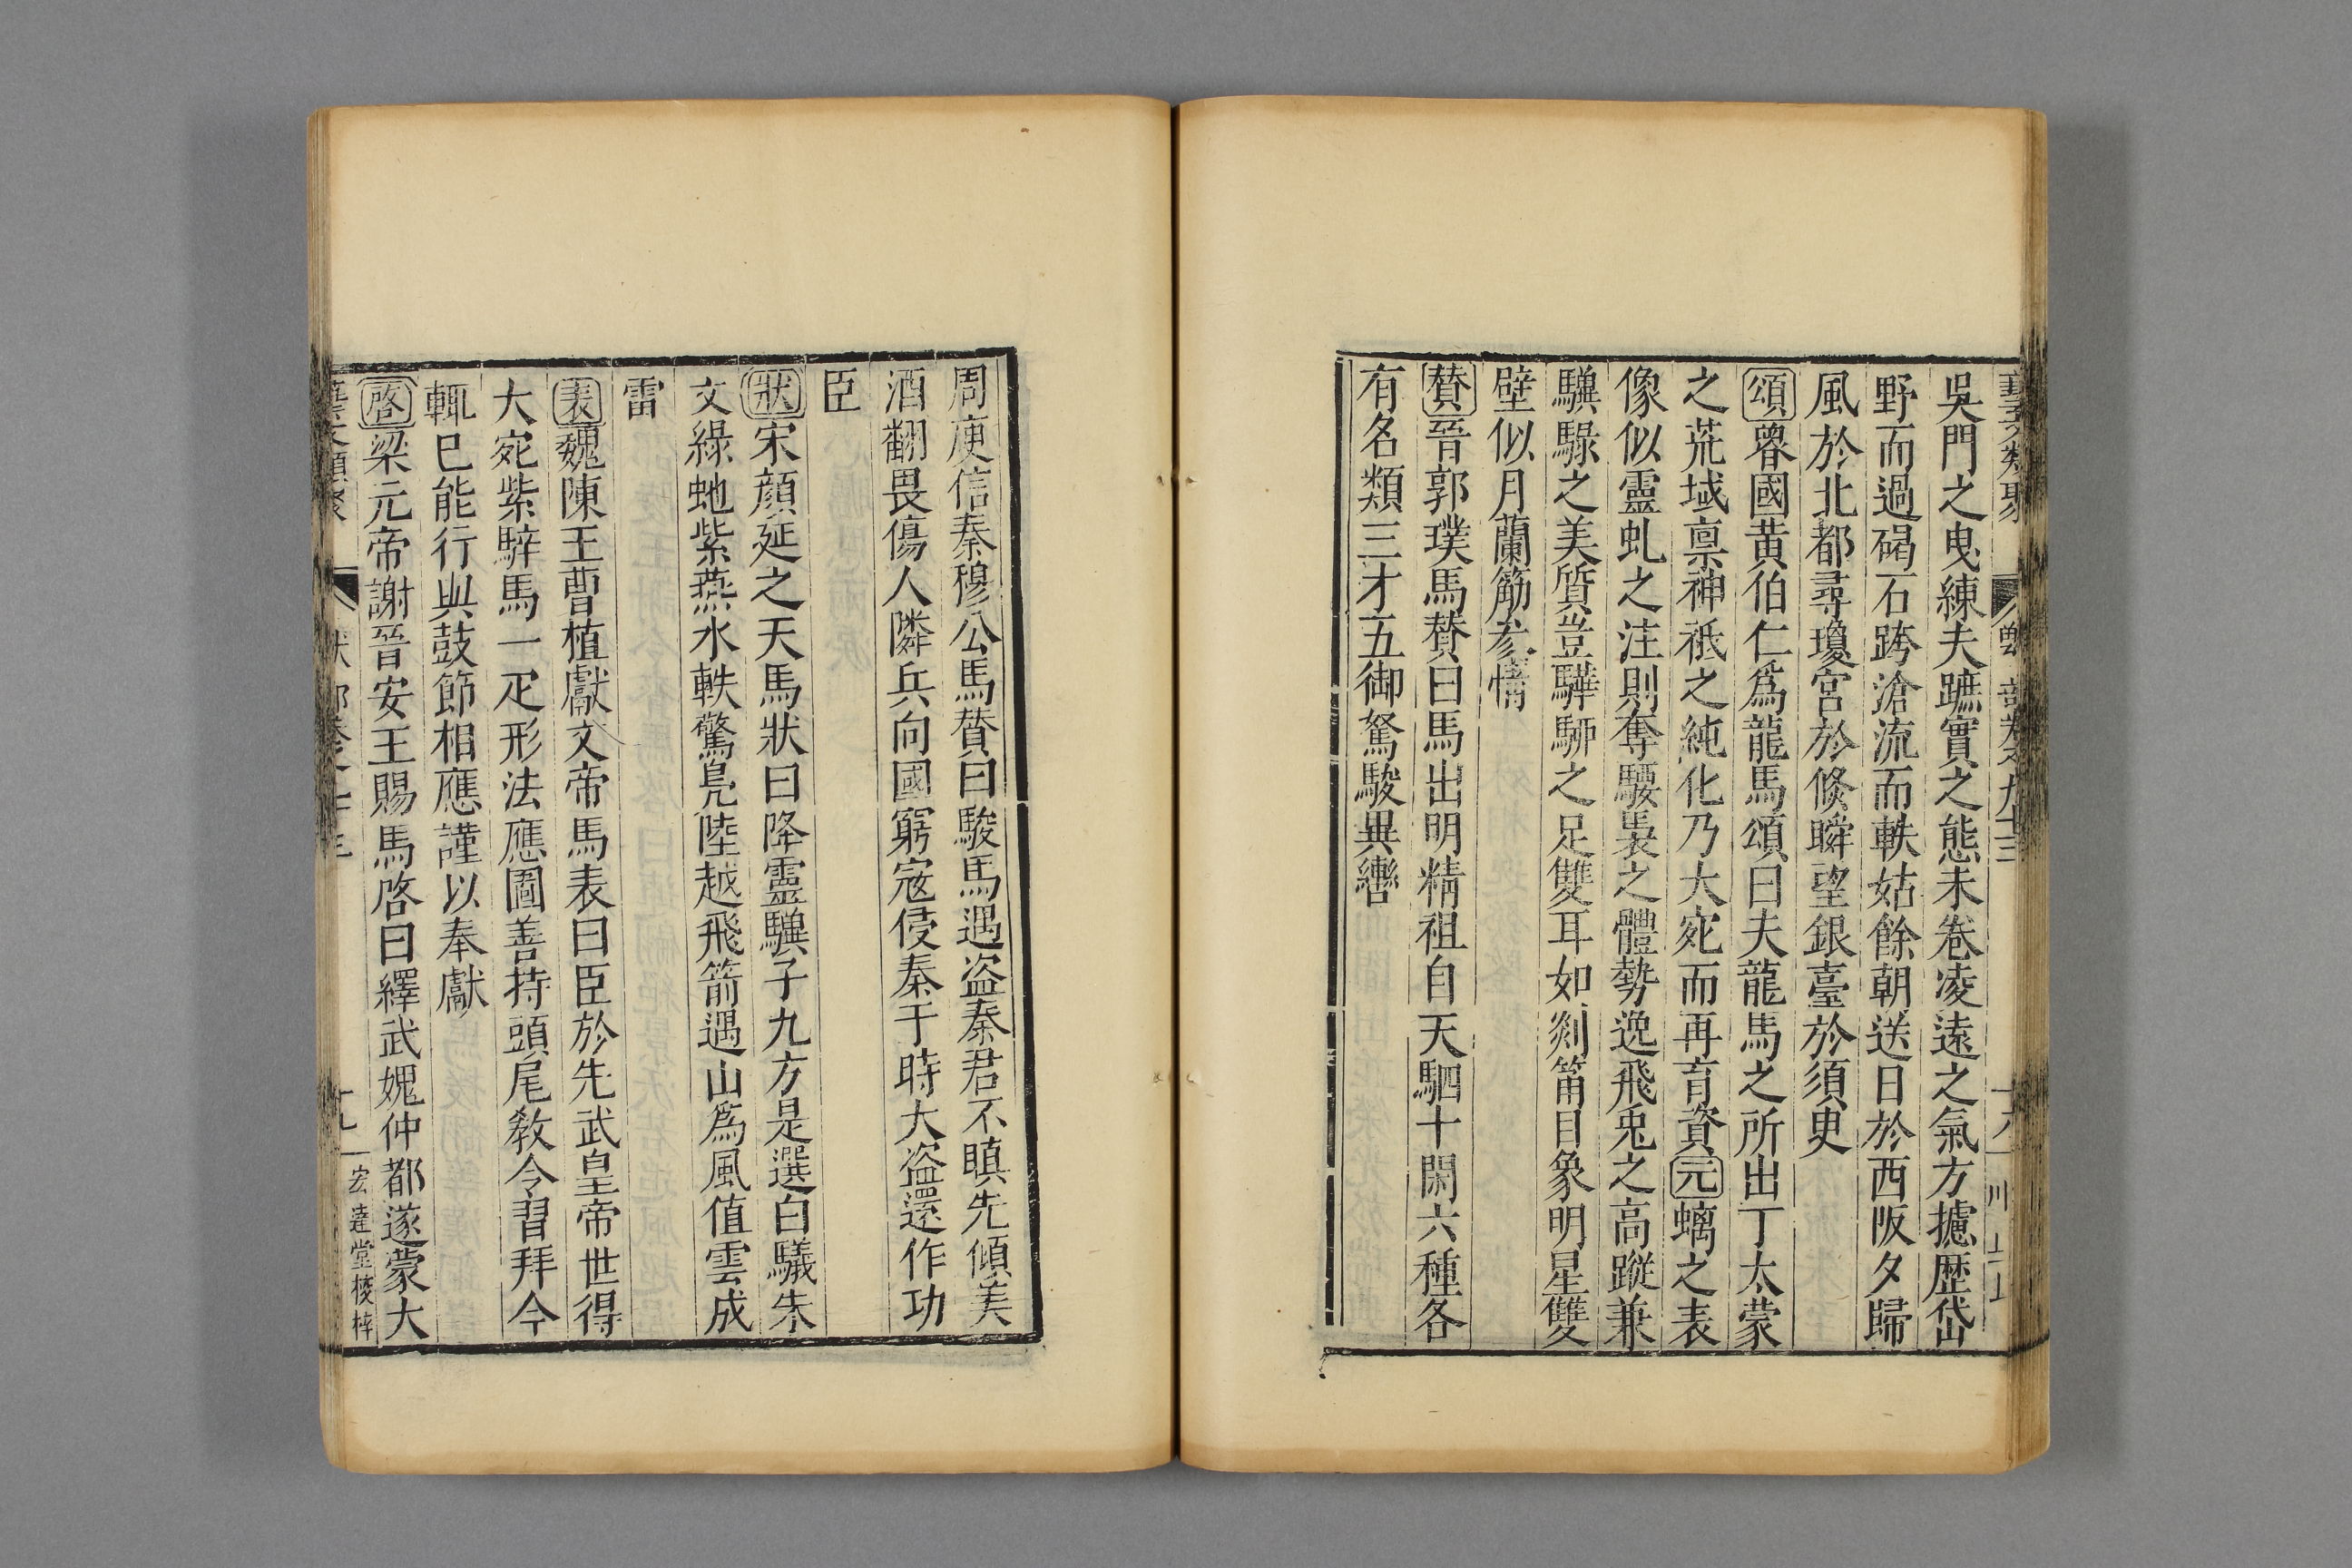 吳門之曳練夫蹠實之態未卷凌遠之氣方攄歴岱
野而過碣石跨滄流而軼姑餘朝送日於西阪夕歸
風於北都尋瓊宮於倐瞬望銀臺於須臾
頌魯國黄伯仁爲龍馬頌曰夫龍馬之所出丁太蒙
之荒域禀神祗之純化乃大宛而再育資元螭之表
像似靈虬之注則奪騕褭之體勢逸飛兎之高蹤兼
驥騄之美質豈驊騮之足雙耳如剡筩目象明星雙
壁似月蘭筋參情
賛晉郭璞馬賛曰馬出明精祖自天駟十閑六種各
有名類三才五御駑駿異轡
周庾信秦穆公馬賛曰駿馬遇盜秦君不瞋先傾美
酒翻畏傷人隣兵向國窮宼侵秦于時大盜還作功
臣
狀宋顔延之天馬狀曰降靈驥子九方是選白驥朱
文綠虵紫燕水軼驚鳧陸越飛箭遇山爲風值雲成
雷
表魏陳王曹植獻文帝馬表曰臣於先武皇帝世得
大宛紫騂馬一疋形法應圖善持頭尾敎令習拜今
輒巳能行與鼓節相應謹以奉獻
啓梁元帝謝晉安王賜馬啓曰繹武媿仲都遂蒙大
宏達堂棱梓